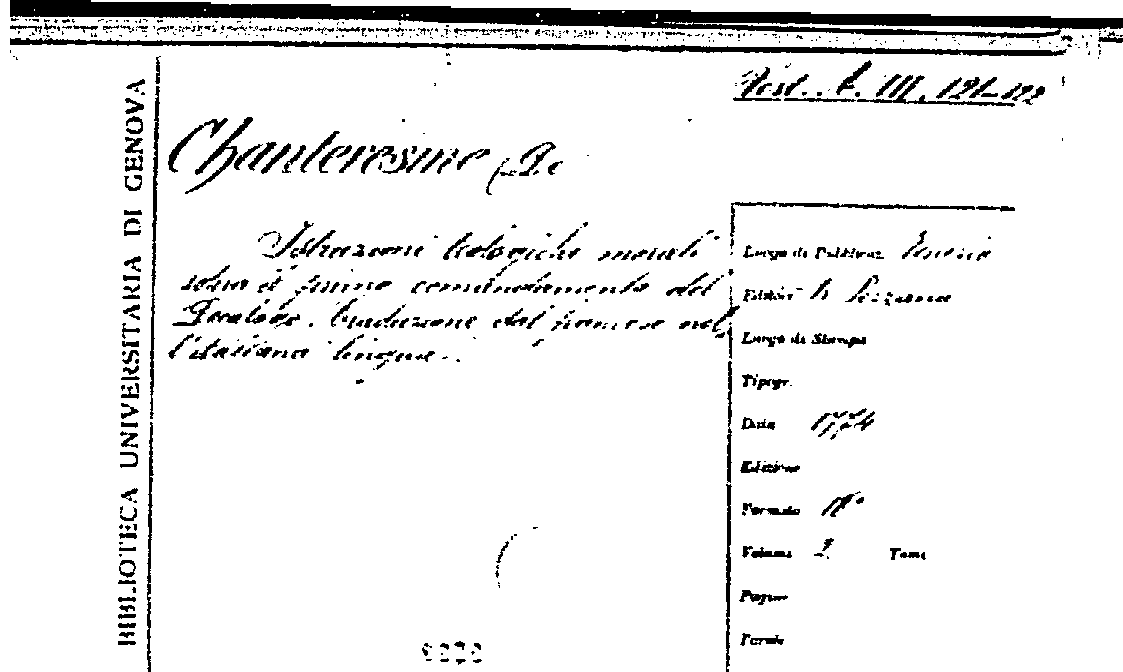 BIBLIOTECA UNIVERSITARIA DI GENOVA
Chanteresme (De
Istruzioni teologiche morali
sopra il primo comandamento del
Decalogo. Traduzione dal francese nel
l'italiana lingua.
Luogo di Pubblicaz. Venezia
Editore Pezzana
Luogo di Stampa
Tipogr.
Data 1774
Edizione
Formato
Volume 2 Tomo
Pagine
Tavole